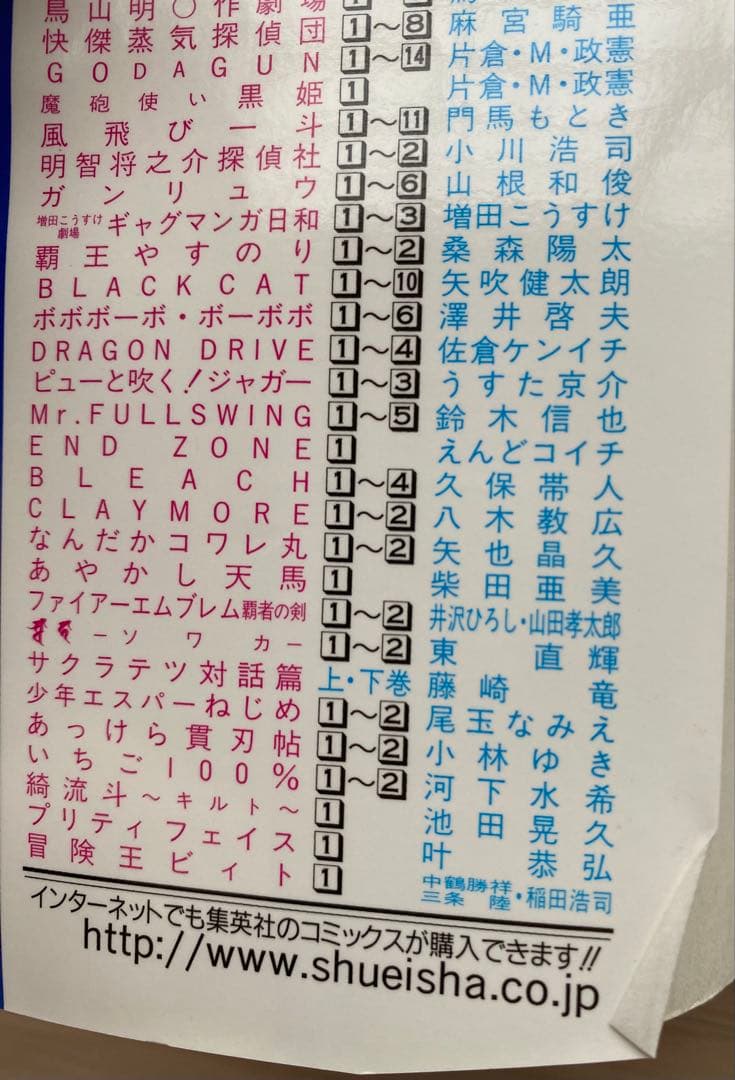 鳥山明○作劇場
快傑蒸気探偵団 1～8 麻宮騎亜
GODAGUN 1～14 片倉・M・政憲
魔砲使い黒姫 1 片倉・M・政憲
風飛び一斗 1～11 門馬もとき
明智将之介探偵社 1～2 小川浩司
ガンリュウ 1～6 山根和俊
増田こうすけ劇場 ギャグマンガ日和 1～3 増田こうすけ
覇王やすのり 1～2 桑森陽太
BLACK CAT 1～10 矢吹健太朗
ボボボーボ・ボーボボ 1～6 澤井啓夫
DRAGON DRIVE 1～4 佐倉ケンイチ
ピューと吹く!ジャガー 1～3 うすた京介
Mr.FULLSWING 1～5 鈴木信也
END ZONE 1 えんどコイチ
BLEACH 1～4 久保帯人
CLAYMORE 1～2 八木教広
なんだかコワレ丸 1～2 矢也晶久
あやかし天馬 1 柴田亜美
ファイアーエムブレム覇者の剣 1～2 井沢ひろし・山田孝太郎
ーソワカー 1～2 東直輝
サクラテツ対話篇 上・下巻 藤崎竜
少年エスパーねじめ 1～2 尾玉なみえ
あっけら貫刃帖 1～2 小林ゆき
いちご100% 1～2 河下水希
綺流斗～キルト～ 1 池田晃久
プリティフェイス 1 叶恭弘
冒険王ビィト 1 中鶴勝祥 三条陸・稲田浩司
インターネットでも集英社のコミックスが購入できます!!
http://www.shueisha.co.jp